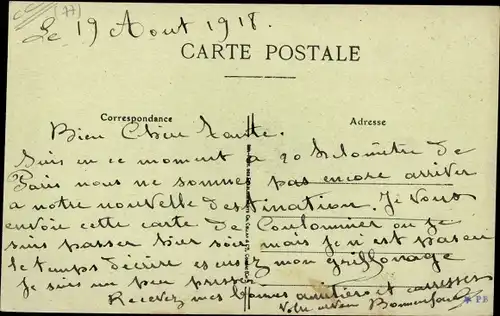 (77)
Le 19 Aout 1918.
CARTE POSTALE
Correspondance
Adresse
Bien Chère Tante.
Suis en ce moment a 20 kilomêtre de
Paris nous ne somme pas encore arriver
a notre nouvelle destination. Je vous
envoie cette carte de Coulommier ou je
suis passer hier soir mais je n'est pas eu
le temps décrire escusez mon grillonage
Je suis un peu presser
Recevez mes bonnes amitiers et caresses
Votre neveu
PB